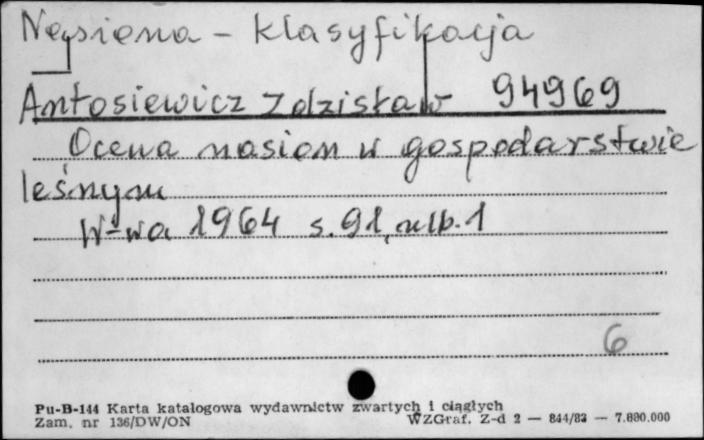 Nasiona - klasyfikacja
Antosiewicz Zdzisław 94969
Ocena nasion w gospodarstwie
leśnym
W-wa 1964 s. 91, nlb. 1
6
Pu-B-144 Karta katalogowa wydawnictw zwartych i ciągłych
Zam. nr 136/DW/ON WZGraf. Z-d 2 — 844/83 — 7.800.000